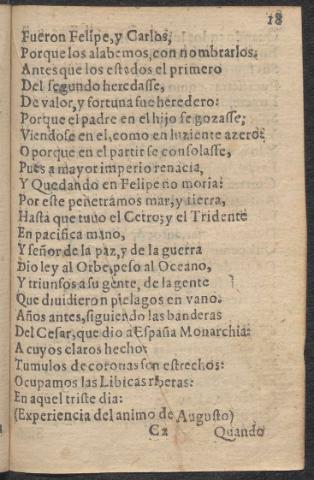 18
Fueron Felipe, y Carlos,
Porque los alabemos, con nombrarlos.
Antes que los estados el primero
Del segundo heredasse,
De valor, y fortuna fue heredero:
Porque el padre en el hijo se gozasse;
Viendose en el, como en luziente azero:
O porque en el partir se consolasse,
Pues a mayor imperio renacia,
Y Quedando en Felipe no moria:
Por este penetramos mar, y tierra,
Hasta que tuuo el Cetro; y el Tridente
En pacifica mano,
Y señor de la paz, y de la guerra
Dio ley al Orbe, peso al Oceano,
Y triunfos a su gente, de la gente
Que diuidieron pielagos en vano.
Años antes, siguiendo las banderas
Del Cesar, que dio a España Monarchia:
A cuyos claros hechos
Tumulos de coronas son estrechos:
Ocupamos las Libicas riberas:
En aquel triste dia:
(Experiencia del animo de Augusto)
C2 Quando